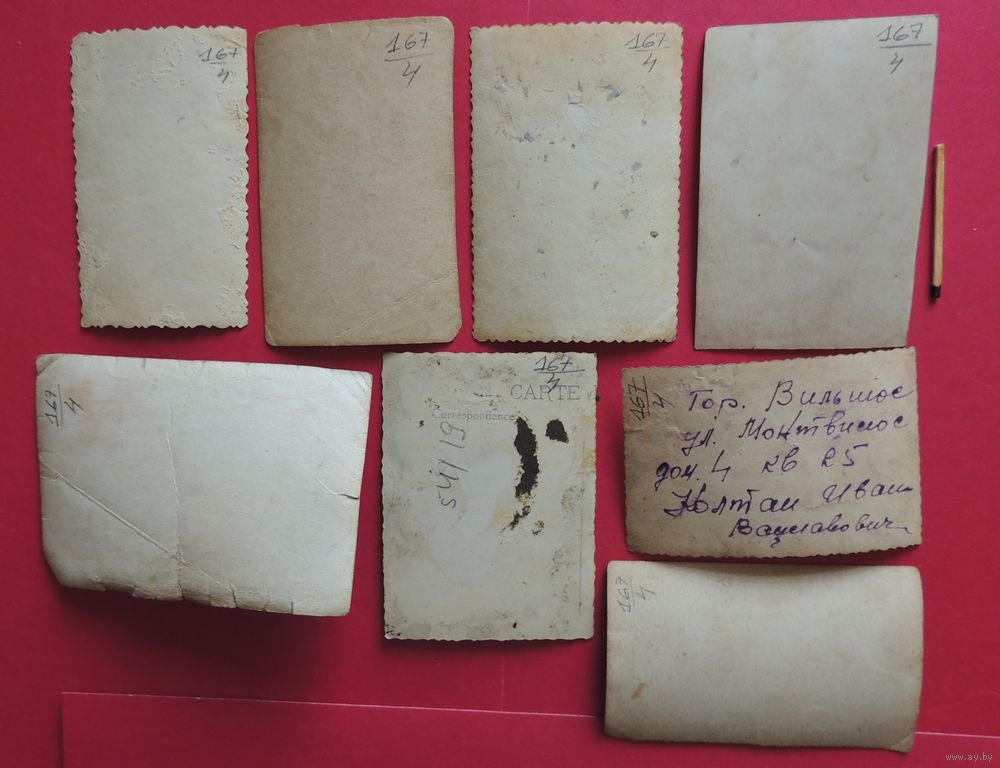 167
4
167
4
167
4
167
4
167
4
167
4
CARTE
Correspondence
1945
167
4
Гор. Вильнюс
ул. Монтвилос
дом. 4 кв 25
Иван
Вацлавович
167
4
www.ay.by